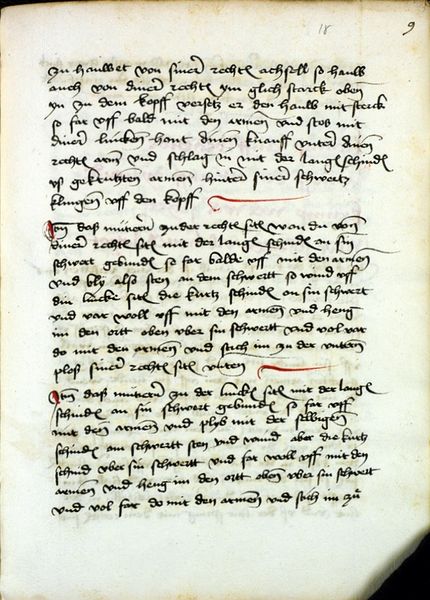 18
9
zu hauwet von siner rechten achsell so hauw
auch von diner rechten ym glich starck oben
yn zu dem kopff versetz er den hauw mit sterck
so far vff bald mit den armen vnd stos mit
diner lincken hant dinen knauff vnter dinen
rechten arm vnd schlag in mit der langen schniden
vs gekrutzten armen hinter siner schwertz
klingen vff den kopff
Item daß mutieren zu der rechten siten wan du von
diner rechten siten mit der langen schniden an sin
schwert gebunden so far balde vff mit den armen
vnd blyb also sten an dem schwertt so wind vff
din lincke siten die kurtz schniden an sin schwert
vnd var woll vff mit den armen vnd heng
im den ortt oben vber sin schwertt vnd vol var
do mit den armen vnd stich im zu der vntern
ploß siner rechten siten vnten
Item daß mutieren zu der lincken siten mit der langen
schniden an sin schwert gebunden so far vff
mit den armen vnd plyb mit der selbigen
schniden am schwertt sten vnd wind aber die kurtz
schnid vber sin schwertt vnd far woll vff mit den
armen vnd heng im den ortt oben vber sin schwert
vnd vol far do mit den armen vnd stich im zu